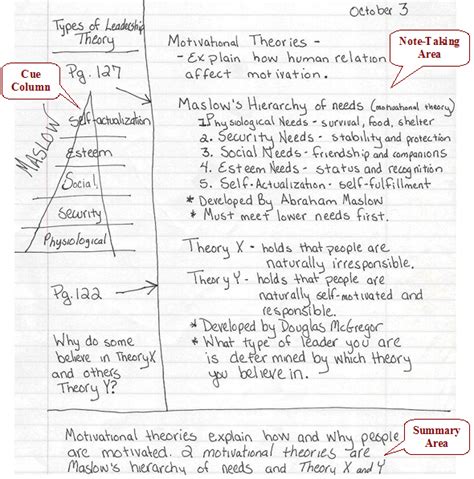 October 3
Types of Leadership
Theory
Cue
Column
Pg. 127
MASLOW
Self-actualization
Esteem
Social
Security
Physiological
Pg. 122
Why do some
believe in Theory X
and others
Theory Y?
Note-Taking
Area
Motivational Theories -
- Explain how human relation
affect motivation.
Maslow's Hierarchy of needs (motivational theory)
1. Physiological Needs - survival, food, shelter
2. Security Needs - stability and protection
3. Social Needs - friendship and companions
4. Esteem Needs - status and recognition
5. Self-Actualization - self-fulfillment
* Developed By Abraham Maslow
* Must meet lower needs first.
Theory X - holds that people are
naturally irresponsible.
Theory Y - holds that people are
naturally self-motivated and
responsible.
* Developed by Douglas McGregor
* What type of leader you are
is determined by which theory
you believe in.
Summary
Area
Motivational theories explain how and why people
are motivated. 2 motivational theories are
Maslow's hierarchy of needs and Theory X and Y